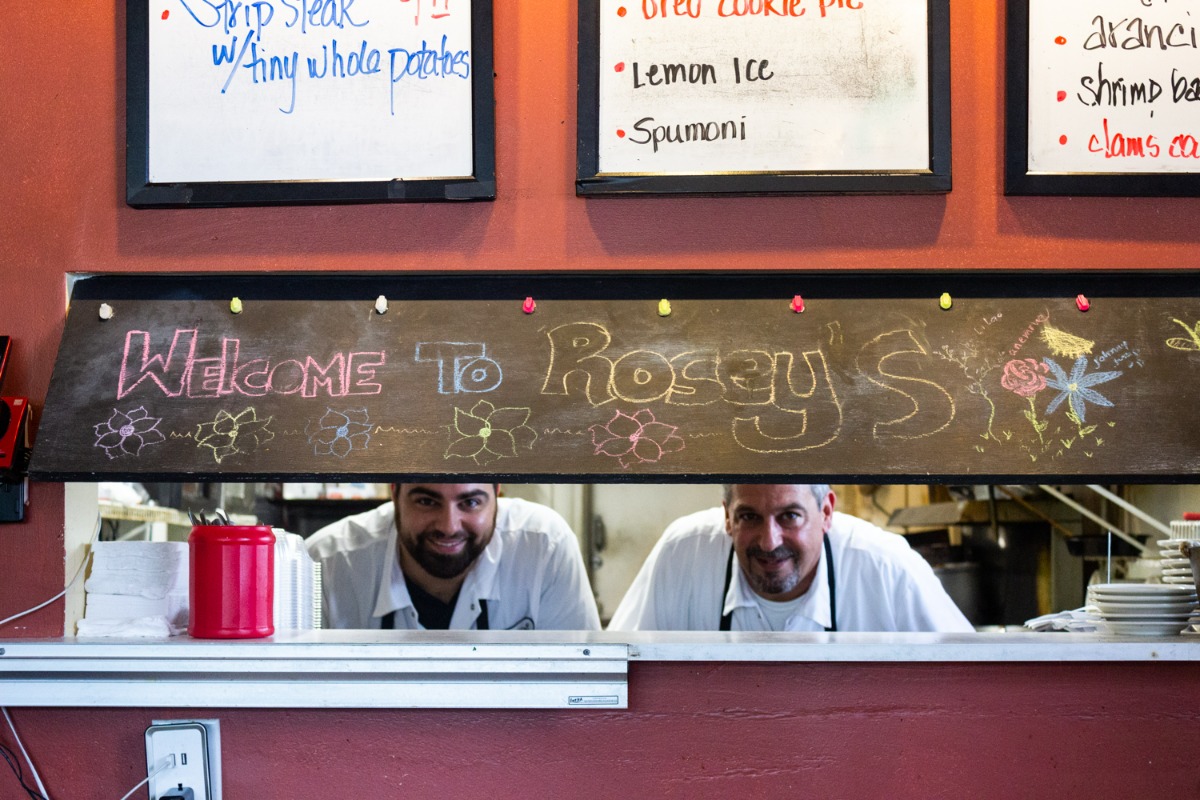 Strip Steak
w/tiny whole potatoes
Oreo cookie pie
Lemon Ice
Spumoni
aranci
shrimp ba
clams ca
WELCOME TO ROSEY'S
Lilac
anemone
Johnny